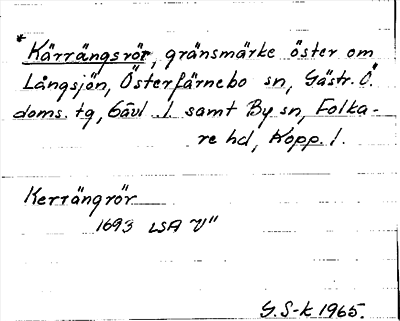 * Kärrängsrör, gränsmärke öster om
Långsjön, Österfärnebo sn, Gästr. Ö.
doms. tg, Gävl. l. samt By sn, Folka-
re hd, Kopp. l.
Kerrängrör
1693 LSA V"
G.S-k 1965.